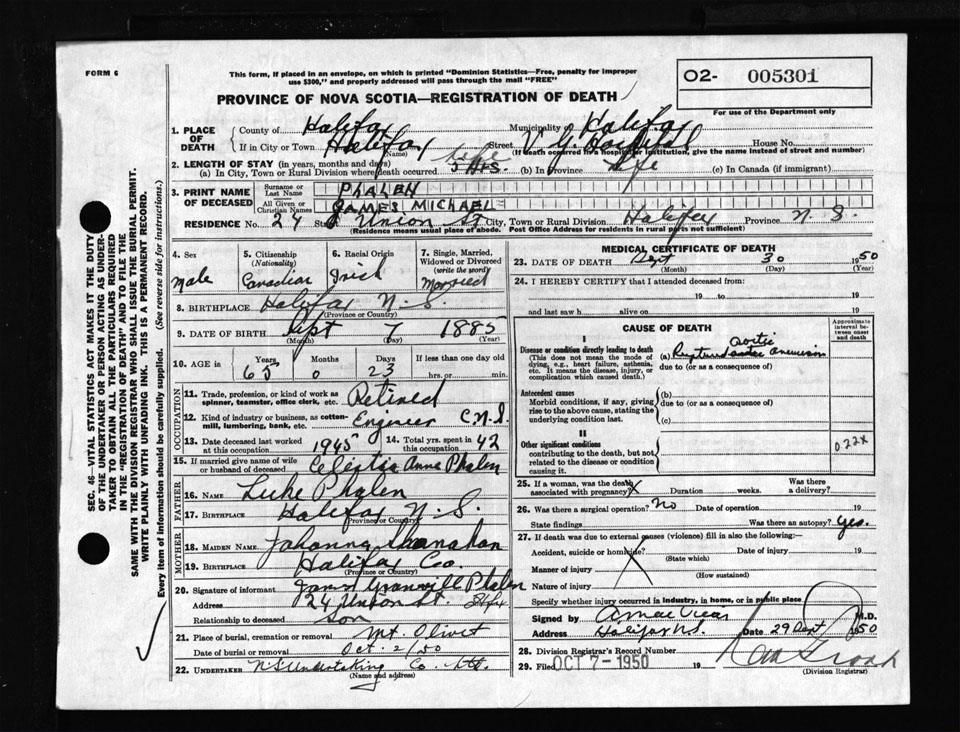 FORM 6
This form, if placed in an envelope, on which is printed "Dominion Statistics—Free, penalty for improper
use $300," and properly addressed will pass through the mail "FREE"
O2- 005301
For use of the Department only
PROVINCE OF NOVA SCOTIA—REGISTRATION OF DEATH
1. PLACE OF DEATH { County of Halifax Municipality of Halifax
If in City or Town Halifax (Name) Street V. G. Hospital House No.
(If death occurred in a hospital or institution, give the name instead of street and number)
2. LENGTH OF STAY (in years, months and days)
(a) In City, Town or Rural Division where death occurred Life 5 Hrs. (b) In Province Life (c) In Canada (if immigrant)
3. PRINT NAME OF DECEASED { Surname or Last Name PHALEN
All Given or Christian Names JAMES MICHAEL
RESIDENCE No. 24 Street Union St City, Town or Rural Division Halifax Province N. S.
(Residence means usual place of abode. Post Office Address for residents in rural parts not sufficient)
4. Sex Male
5. Citizenship (Nationality) Canadian
6. Racial Origin Irish
7. Single, Married, Widowed or Divorced (write the word) Married
8. BIRTHPLACE Halifax N. S.
(Province or Country)
9. DATE OF BIRTH Sept 7 1885
(Month) (Day) (Year)
10. AGE Years 65 Months 0 Days 23 If less than one day old
hrs. or min.
OCCUPATION
11. Trade, profession, or kind of work as spinner, teamster, office clerk, etc. Retired
12. Kind of industry or business, as cotton-mill, lumbering, bank, etc. Engineer C.N.S.
13. Date deceased last worked at this occupation 1945 14. Total yrs. spent in this occupation 42
15. If married give name of wife or husband of deceased Celestia Anne Phalen
FATHER
16. NAME Luke Phalen
17. BIRTHPLACE Halifax N. S.
(Province or Country)
MOTHER
18. MAIDEN NAME Johanna Shanahan
19. BIRTHPLACE Halifax Co.
(Province or Country)
20. Signature of informant James Granvill Phalen
Address 24 Union St. Hfx
Relationship to deceased Son
21. Place of burial, cremation or removal Mt. Olivet
Date of burial or removal Oct. 2/50
22. UNDERTAKER N S Undertaking Co. Ltd.
(Name and address)
MEDICAL CERTIFICATE OF DEATH
23. DATE OF DEATH Sept 30 1950
(Month) (Day) (Year)
24. I HEREBY CERTIFY that I attended deceased from:
19 to 19
and last saw h alive on 19
CAUSE OF DEATH
Approximate interval between onset and death
I
Disease or condition directly leading to death
(This does not mean the mode of dying, e.g., heart failure, asthenia, etc. It means the disease, injury, or complication which caused death.)
(a) Ruptured aortic aneurism
due to (or as a consequence of)
Antecedent causes
Morbid conditions, if any, giving rise to the above cause, stating the underlying condition last.
(b)
due to (or as a consequence of)
(c)
II
Other significant conditions
contributing to the death, but not related to the disease or condition causing it.
022X
25. If a woman, was the death associated with pregnancy? X Duration weeks. Was there a delivery?
26. Was there a surgical operation? No Date of operation 19
State findings Was there an autopsy? Yes.
27. If death was due to external causes (violence) fill in also the following:—
Accident, suicide or homicide? Date of injury 19
(State which)
Manner of injury
(How sustained)
Nature of injury
Specify whether injury occurred in industry, in home, or in public place
Signed by M.D.
Address Halifax N.S. Date 29 Sept 1950
28. Division Registrar's Record Number
29. Filed OCT 7 - 1950 19
(Division Registrar)
SEC. 46—VITAL STATISTICS ACT MAKES IT THE DUTY
OF THE UNDERTAKER OR PERSON ACTING AS UNDER-
TAKER TO OBTAIN ALL THE PARTICULARS REQUIRED
IN THE "REGISTRATION OF DEATH" AND TO FILE THE
SAME WITH THE DIVISION REGISTRAR WHO SHALL ISSUE THE BURIAL PERMIT.
WRITE PLAINLY WITH UNFADING INK. THIS IS A PERMANENT RECORD.
Every item of information should be carefully supplied. (See reverse side for instructions.)